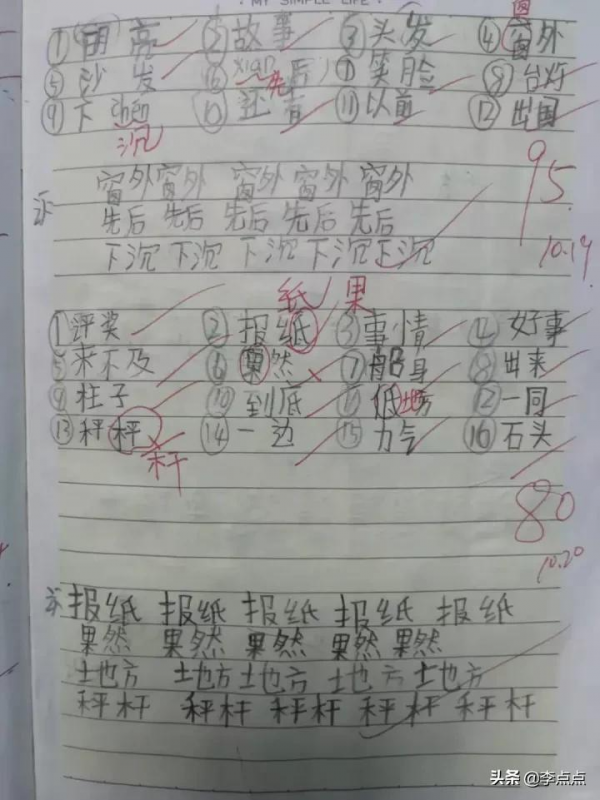 MY SIMPLE LIFE
窗
② 故事 ③ 头发 ④ 窗外
⑤ 沙发 ⑥ xian 先后 ⑦ 笑脸 ⑧ 台灯
⑨ 下 ⑩ 还清 ⑪ 以前 ⑫ 出国
沉
95
窗外 窗外 窗外 窗外 窗外
先后 先后 先后 先后 先后
下沉 下沉 下沉 下沉 下沉
10.19
纸 果
① 评奖 ② 报纸 ③ 事情 ④ 好事
⑤ 来不及 ⑥ 果然 ⑦ 船身 ⑧ 出来
⑨ 柱子 ⑩ 到底 ⑪ 地方 ⑫ 一同
⑬ 秤秤 ⑭ 一边 ⑮ 力气 ⑯ 石头
杆
80
10.20
报纸 报纸 报纸 报纸 报纸
果然 果然 果然 果然 果然
土地方 土地方 土地方 土地方 土地方
秤杆 秤杆 秤杆 秤杆 秤杆
头条 @李点点